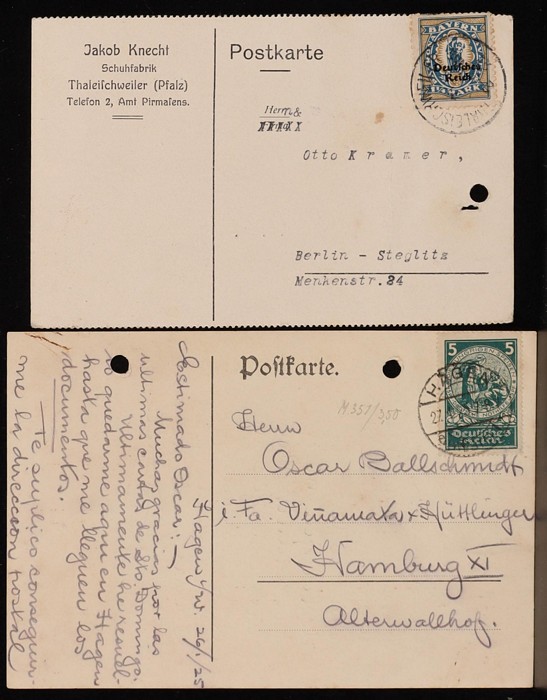 Jakob Knecht
Schuhfabrik
Thaleischweiler (Pfalz)
Telefon 2, Amt Pirmasens.
Postkarte
BAYERN
Deutsches
Reich
MARK
Herrn
Otto Kramer,
Berlin - Steglitz
Menkenstr. 24
Postkarte.
5 5
HAGEN
Deutsches
Reich
M 357/3,50
Herrn
Oscar Ballschmidt
i. Fa. Vinamata & Hüttlinger
Hamburg XI
Alterwallhof.
Hagen i/W. 26/1/25
Estimado Oscar:
Muchas gracias por las
ultimas cartas de Sto. Domingo.
Ultimamente he resuel-
to quedarme aqui en Hagen
hasta que me lleguen los
documentos.
Te suplico conseguir-
me la direccion postal